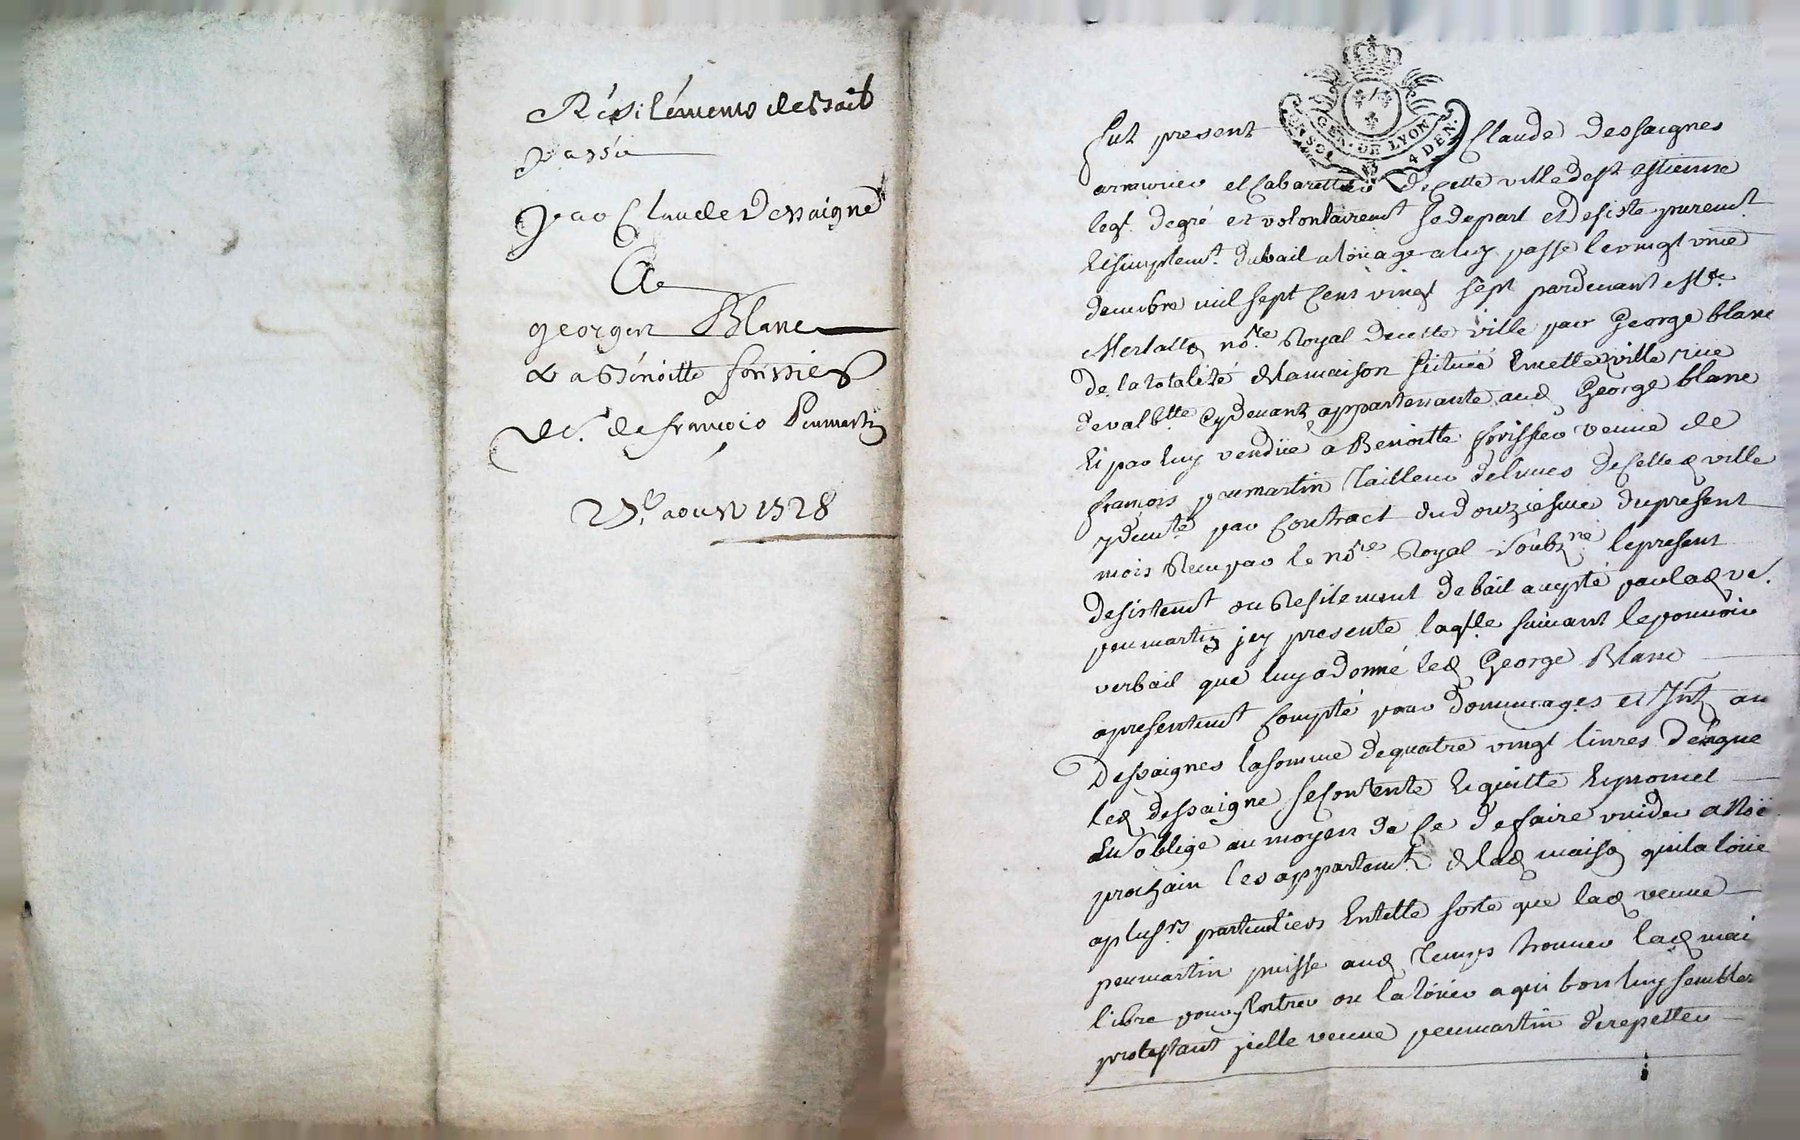 Résiléments de bail
passé
par Claude Dessaigne
A
george Blanc
& a bénoitte forissier
ve. de françois Peumartin
25e. aoust 1728
GEN. DE LYON
4 DEN.
Fut present Claude Dessaignes
armurier et Cabarettier de cette ville de st. Estienne
leql. de gré et volontairemt. se depart et desiste puremt.
et simplemt. du bail a loüage a luy passé le vingt une
decembre mil sept Cent vingt sept pardevant Me.
nore. Royal de cette ville par George blanc
de la totalité de la maison scituée en cette ville rue
de valbtte. cy devant appartenante aud George blanc
et par luy vendüe a Benoitte forissier veuve de
francois peumartin Tailleur de limes de cette ville
par Contract du douziesme du present
mois Receu par le nore. Royal soubzne. le present
desistemt ou Resilement de bail accepté par lad ve.
peumartin jcy presente laqlle. suivant le pouvoir
verbail que luy a donné led George Blanc
a presentemt Compté pour dommages et Intz au
Dessaignes la somme de quatre vingt livres de laque
led dessaigne se Contente et quitte et promet
et s'oblige au moyen de Ce de faire vuider a Noë
prochain les appartemts de lad maison qu'il a loüé
a plusrs. particuliers En telle sorte que lad veuve
peumartin puisse aud Temps trouver lad mai
libre pour y Entrer ou la loüer a qui bon luy semblera
protestant jcelle veuve peumartin de repetter